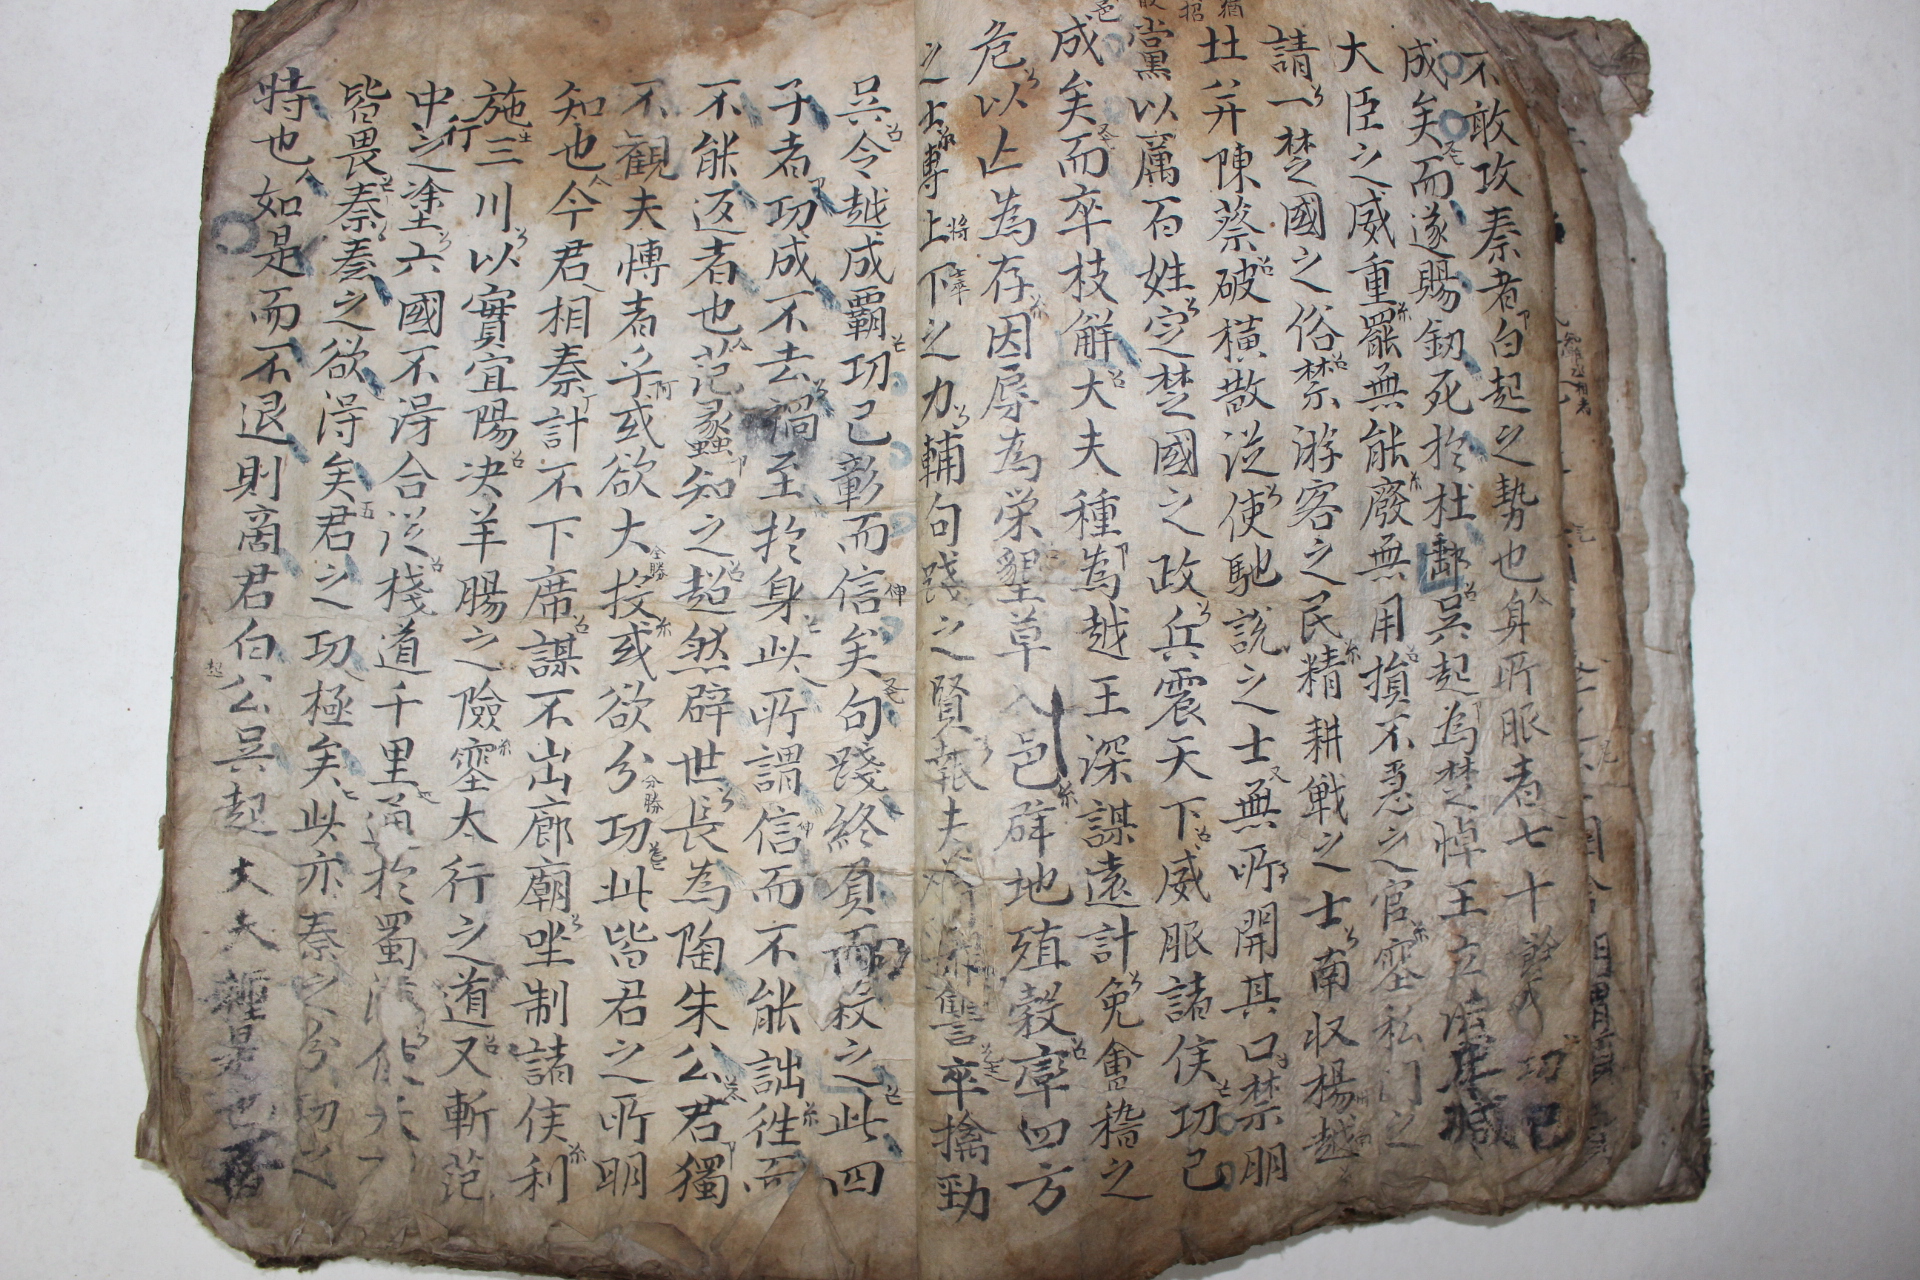 不敢攻秦者白起之勢也身所服者七十餘城功已
成矣而遂賜釰死於杜郵吳起為楚悼王立法卑減
大臣之威重罷無能廢無用損不急之官塞私門之
請一楚國之俗禁游客之民精耕戰之士南收楊越
北并陳蔡破橫散從使馳說之士無所開其口禁朋
黨以厲百姓定楚國之政兵震天下威服諸侯功已
成矣而卒枝解大夫種為越王深謀遠計免會稽之
危以亡為存因辱為榮墾草入邑辟地殖穀率四方
之士專上下之力輔句踐之賢報夫差之讐卒擒勁
吳令越成覇功已彰而信矣句踐終負而殺之此四
子者功成不去禍至於身此所謂信而不能詘徃而
不能返者也范蠡知之超然辟世長為陶朱公君獨
不觀夫博者乎或欲大投或欲分功此皆君之所明
知也今君相秦計不下席謀不出廊廟坐制諸侯利
施三川以實宜陽決羊腸之險塞太行之道又斬范
中行之塗六國不得合從棧道千里通於蜀漢使天下
皆畏秦秦之欲得矣君之功極矣此亦秦之分功之
時也如是而不退則商君白公吳起大夫種是也